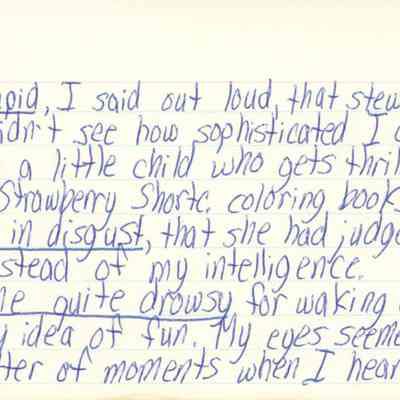 pid, I said out loud, that stew
idn't see how sophisticated I
a little child who gets thril
Strawberry Shortc. coloring books
in disgust, that she had judge
stead of my intelligence.
me quite drowsy for waking
y idea of fun. My eyes seeme
ter of moments when I hear